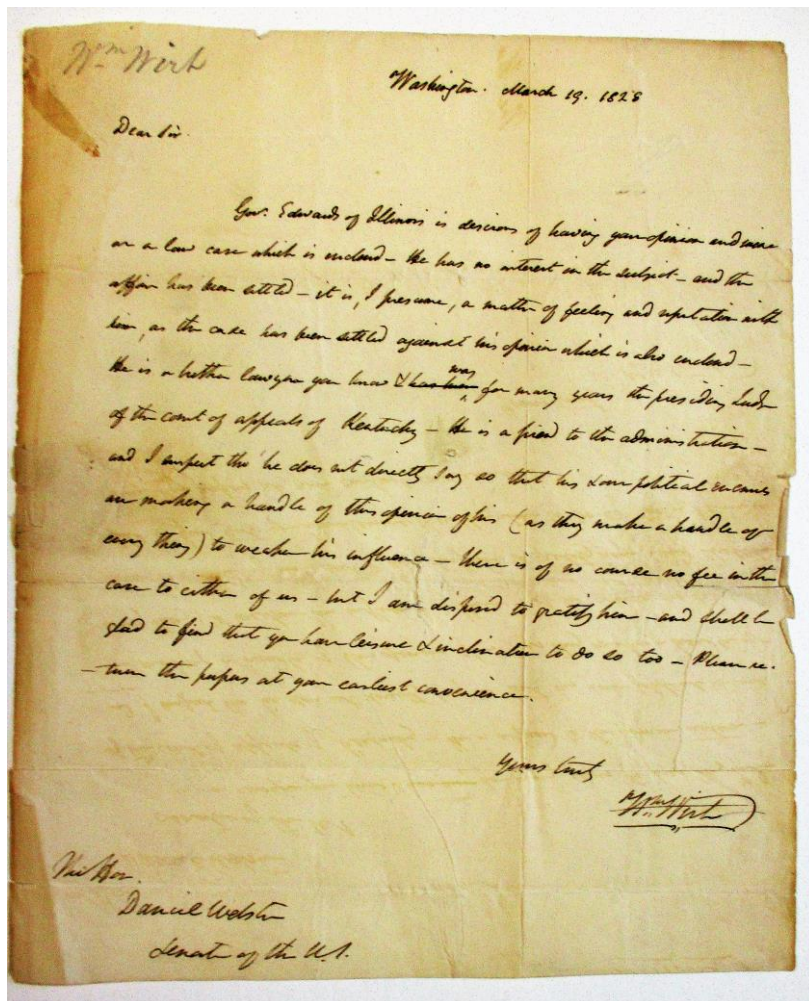 Wm Wirt
Washington. March 19. 1828
Dear Sir.
Gov. Edwards of Illinois is desirous of having your opinion and mine
on a law case which is enclosed — He has no interest in the subject — and the
affair has been settled — it is, I presume, a matter of feeling and reputation with
him, as the case has been settled against his opinion which is also enclosed —
He is a better lawyer you know & has been was for many years the presiding Judge
of the court of appeals of Kentucky — He is a friend to the administration —
and I suspect tho' he does not directly say so that his & our political enemies
are making a handle of this opinion of his (as they make a handle of
every thing) to weaken his influence — there is of no course no fee in the
case to either of us — but I am disposed to gratify him — and shall be
glad to find that you have leisure & inclination to do so too — Please re-
-turn the papers at your earliest convenience.
Yours truly
Wm Wirt
The Hon.
Daniel Webster
Senate of the U.S.